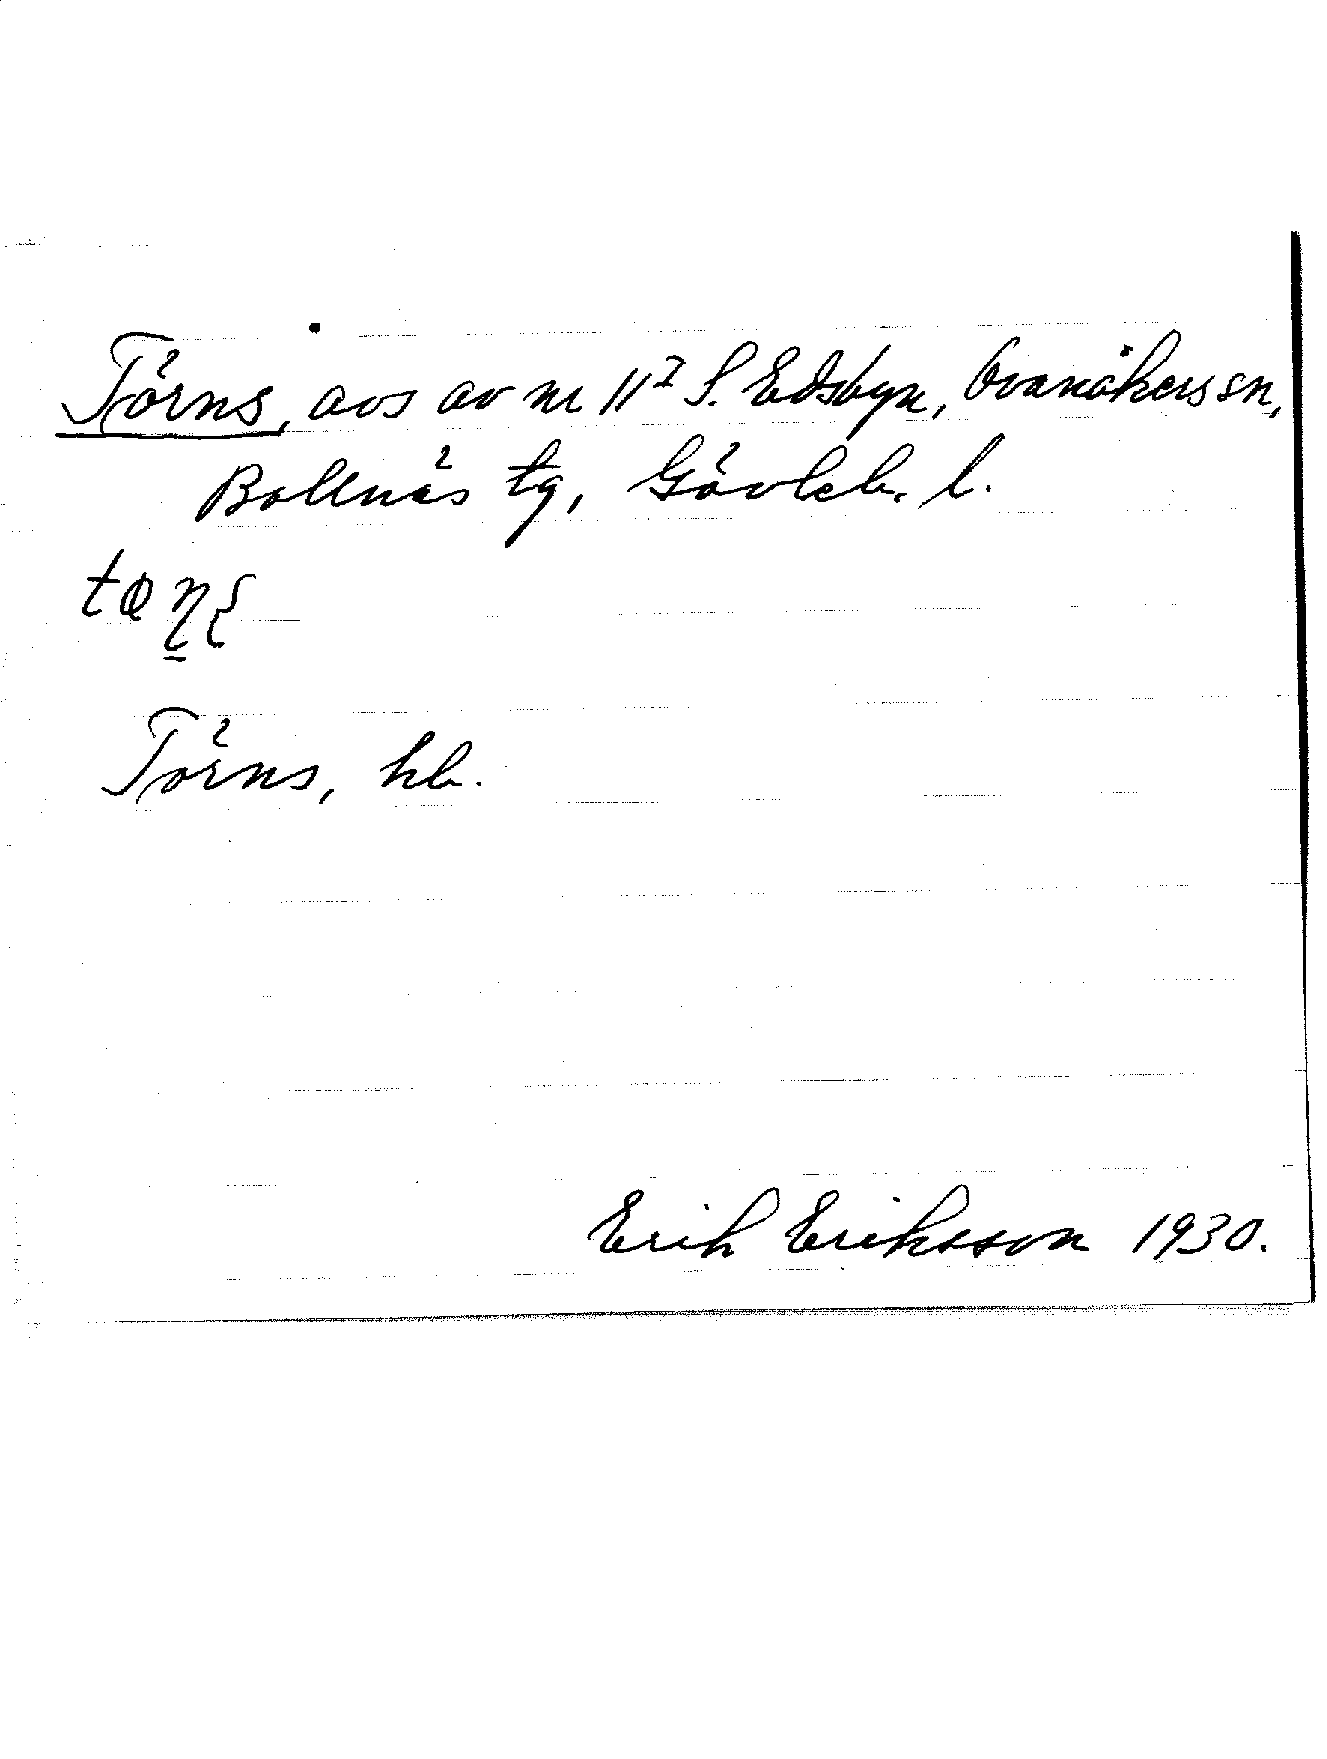 Törns, avs av nr 11² S. Edsbyn, Ovanåkers sn,
Bollnäs tg, Gävleb. l.
Törns, hb.
Erik Eriksson 1930.